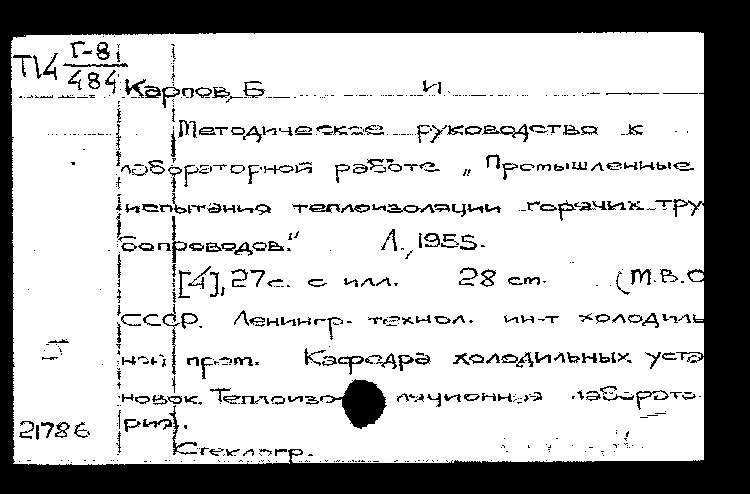 П14 Г-8
484
Карпов, Б И
Методическое руководство к
лабораторной работе „Промышленные
испытания теплоизоляции горячих тру-
бопроводов." Л., 1955.
[4], 27 с. с илл. 28 cm. (М.В.О
СССР. Ленингр. технол. ин-т холодиль
ной пром. Кафедра холодильных уста
новок. Теплоизоляционная лаборато
рия).
21786
Стеклогр.